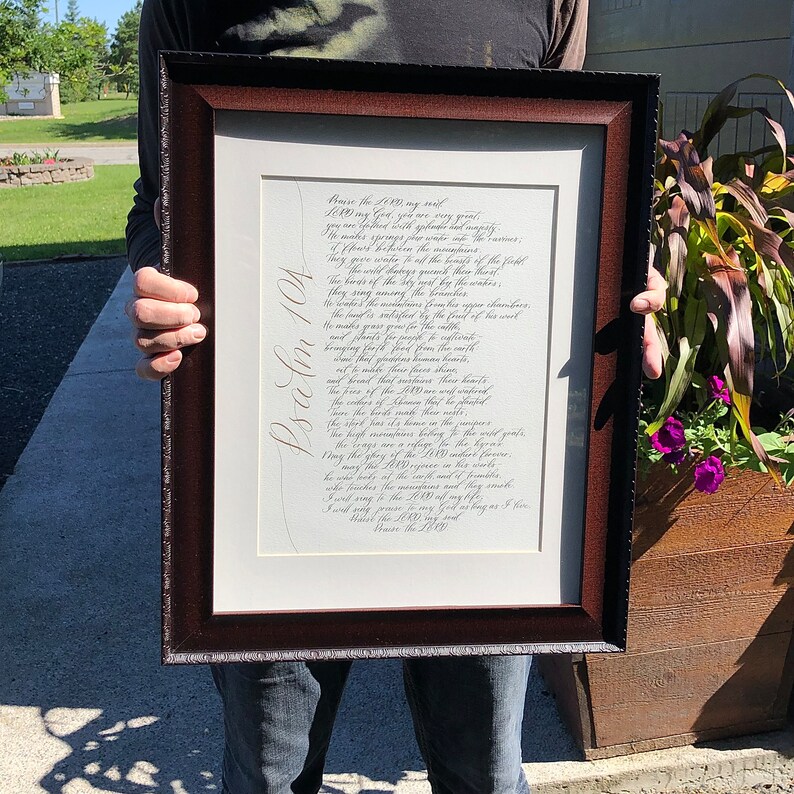 Psalm 104
Praise the LORD, my soul.
LORD my God, you are very great;
you are clothed with splendor and majesty.
He makes springs pour water into the ravines;
it flows between the mountains.
They give water to all the beasts of the field;
the wild donkeys quench their thirst.
The birds of the sky nest by the waters;
they sing among the branches.
He waters the mountains from his upper chambers;
the land is satisfied by the fruit of his work.
He makes grass grow for the cattle,
and plants for people to cultivate-
bringing forth food from the earth:
wine that gladdens human hearts,
oil to make their faces shine,
and bread that sustains their hearts.
The trees of the LORD are well watered,
the cedars of Lebanon that he planted.
There the birds make their nests;
the stork has its home in the junipers.
The high mountains belong to the wild goats;
the crags are a refuge for the hyrax.
May the glory of the LORD endure forever;
may the LORD rejoice in his works-
he who looks at the earth, and it trembles,
who touches the mountains and they smoke.
I will sing to the LORD all my life;
I will sing praise to my God as long as I live.
Praise the LORD, my soul.
Praise the LORD.